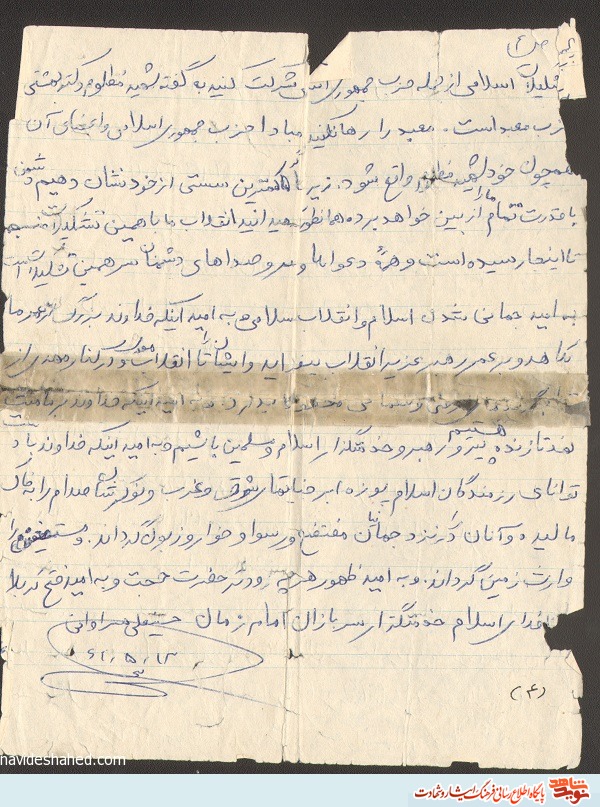 ص ۴
اسلامی از جمله حزب جمهوری اسلامی شرکت کنید به گفته شهید مظلوم دکتر بهشتی
حزب معبد است. معبد را رها نکنید مبادا حزب جمهوری اسلامی و اعضای آن
همچون خود شهید مظلوم واقع شود. زیرا اگر کمترین سستی از خود نشان دهیم دشمن
با قدرت تمام ما را از بین خواهد برد همانطور میدانید انقلاب ما با همین تشکیلات
تا اینجا رسیده است و همهٔ دعواها و سر و صداهای دشمنان سر همین تشکیلات است
به امید جهانی شدن اسلام و انقلاب اسلامی و به امید اینکه خداوند بزرگ از عمر ما
بکاهد و بر عمر رهبر عزیز انقلاب بیفزاید و ایشان را تا انقلاب مهدی و در کنار مهدی از
محفوظ بدارد. و به امید اینکه خداوند بر ما منت
نهد تا زنده هستیم پیرو رهبر و خدمتگزار اسلام و مسلمین باشیم و به امید اینکه خداوند با
توانای رزمندگان اسلام پوزه ابرجنایتکار شرق و غرب و نوکرشان صدام را به خاک
مالیده و آنان را نزد جهانیان مفتضح و رسوا و خوار و زبون گرداند. و مستضعفین را
وارث زمین گرداند. و به امید ظهور هر چه زودتر حضرت حجت و به امید فتح کربلا
فدای اسلام خدمتگزار سربازان امام زمان
۶۲/۵/۱۳
(۴)
navideshahed.com
پایگاه اطلاع رسانی فرهنگ ایثار و شهادت
نوید شاهد